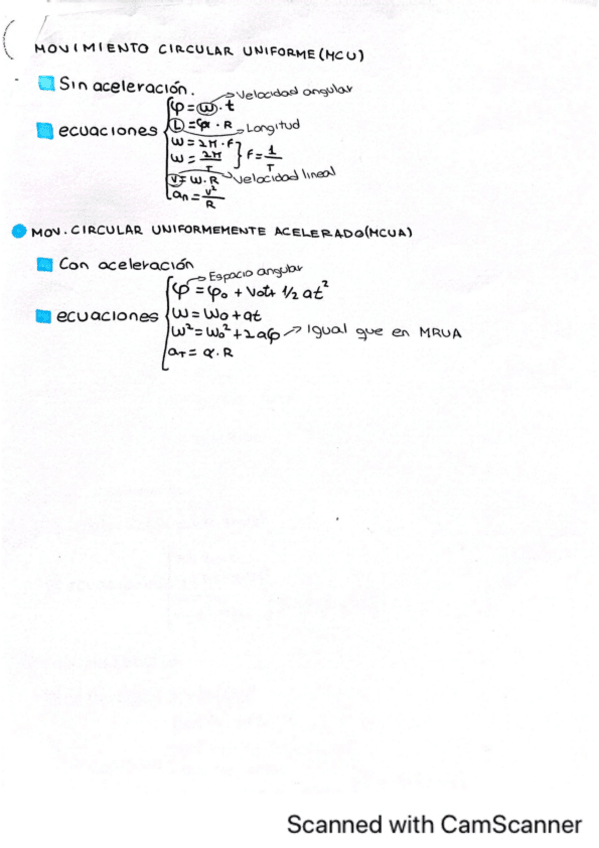 MOVIMIENTO CIRCULAR UNIFORME (MCU)
Sin aceleración.
Velocidad angular
φ = ω · t
ecuaciones
L = φ · R
Longitud
ω = 2π · F
ω = 2π/T
F = 1/T
v = ω · R
Velocidad lineal
an = v²/R
MOV. CIRCULAR UNIFORMEMENTE ACELERADO (MCUA)
Con aceleración
Espacio angular
φ = φ₀ + Vot + 1/2 at²
ecuaciones
ω = ω₀ + at
ω² = ω₀² + 2aφ → Igual que en MRUA
aT = α · R
Scanned with CamScanner